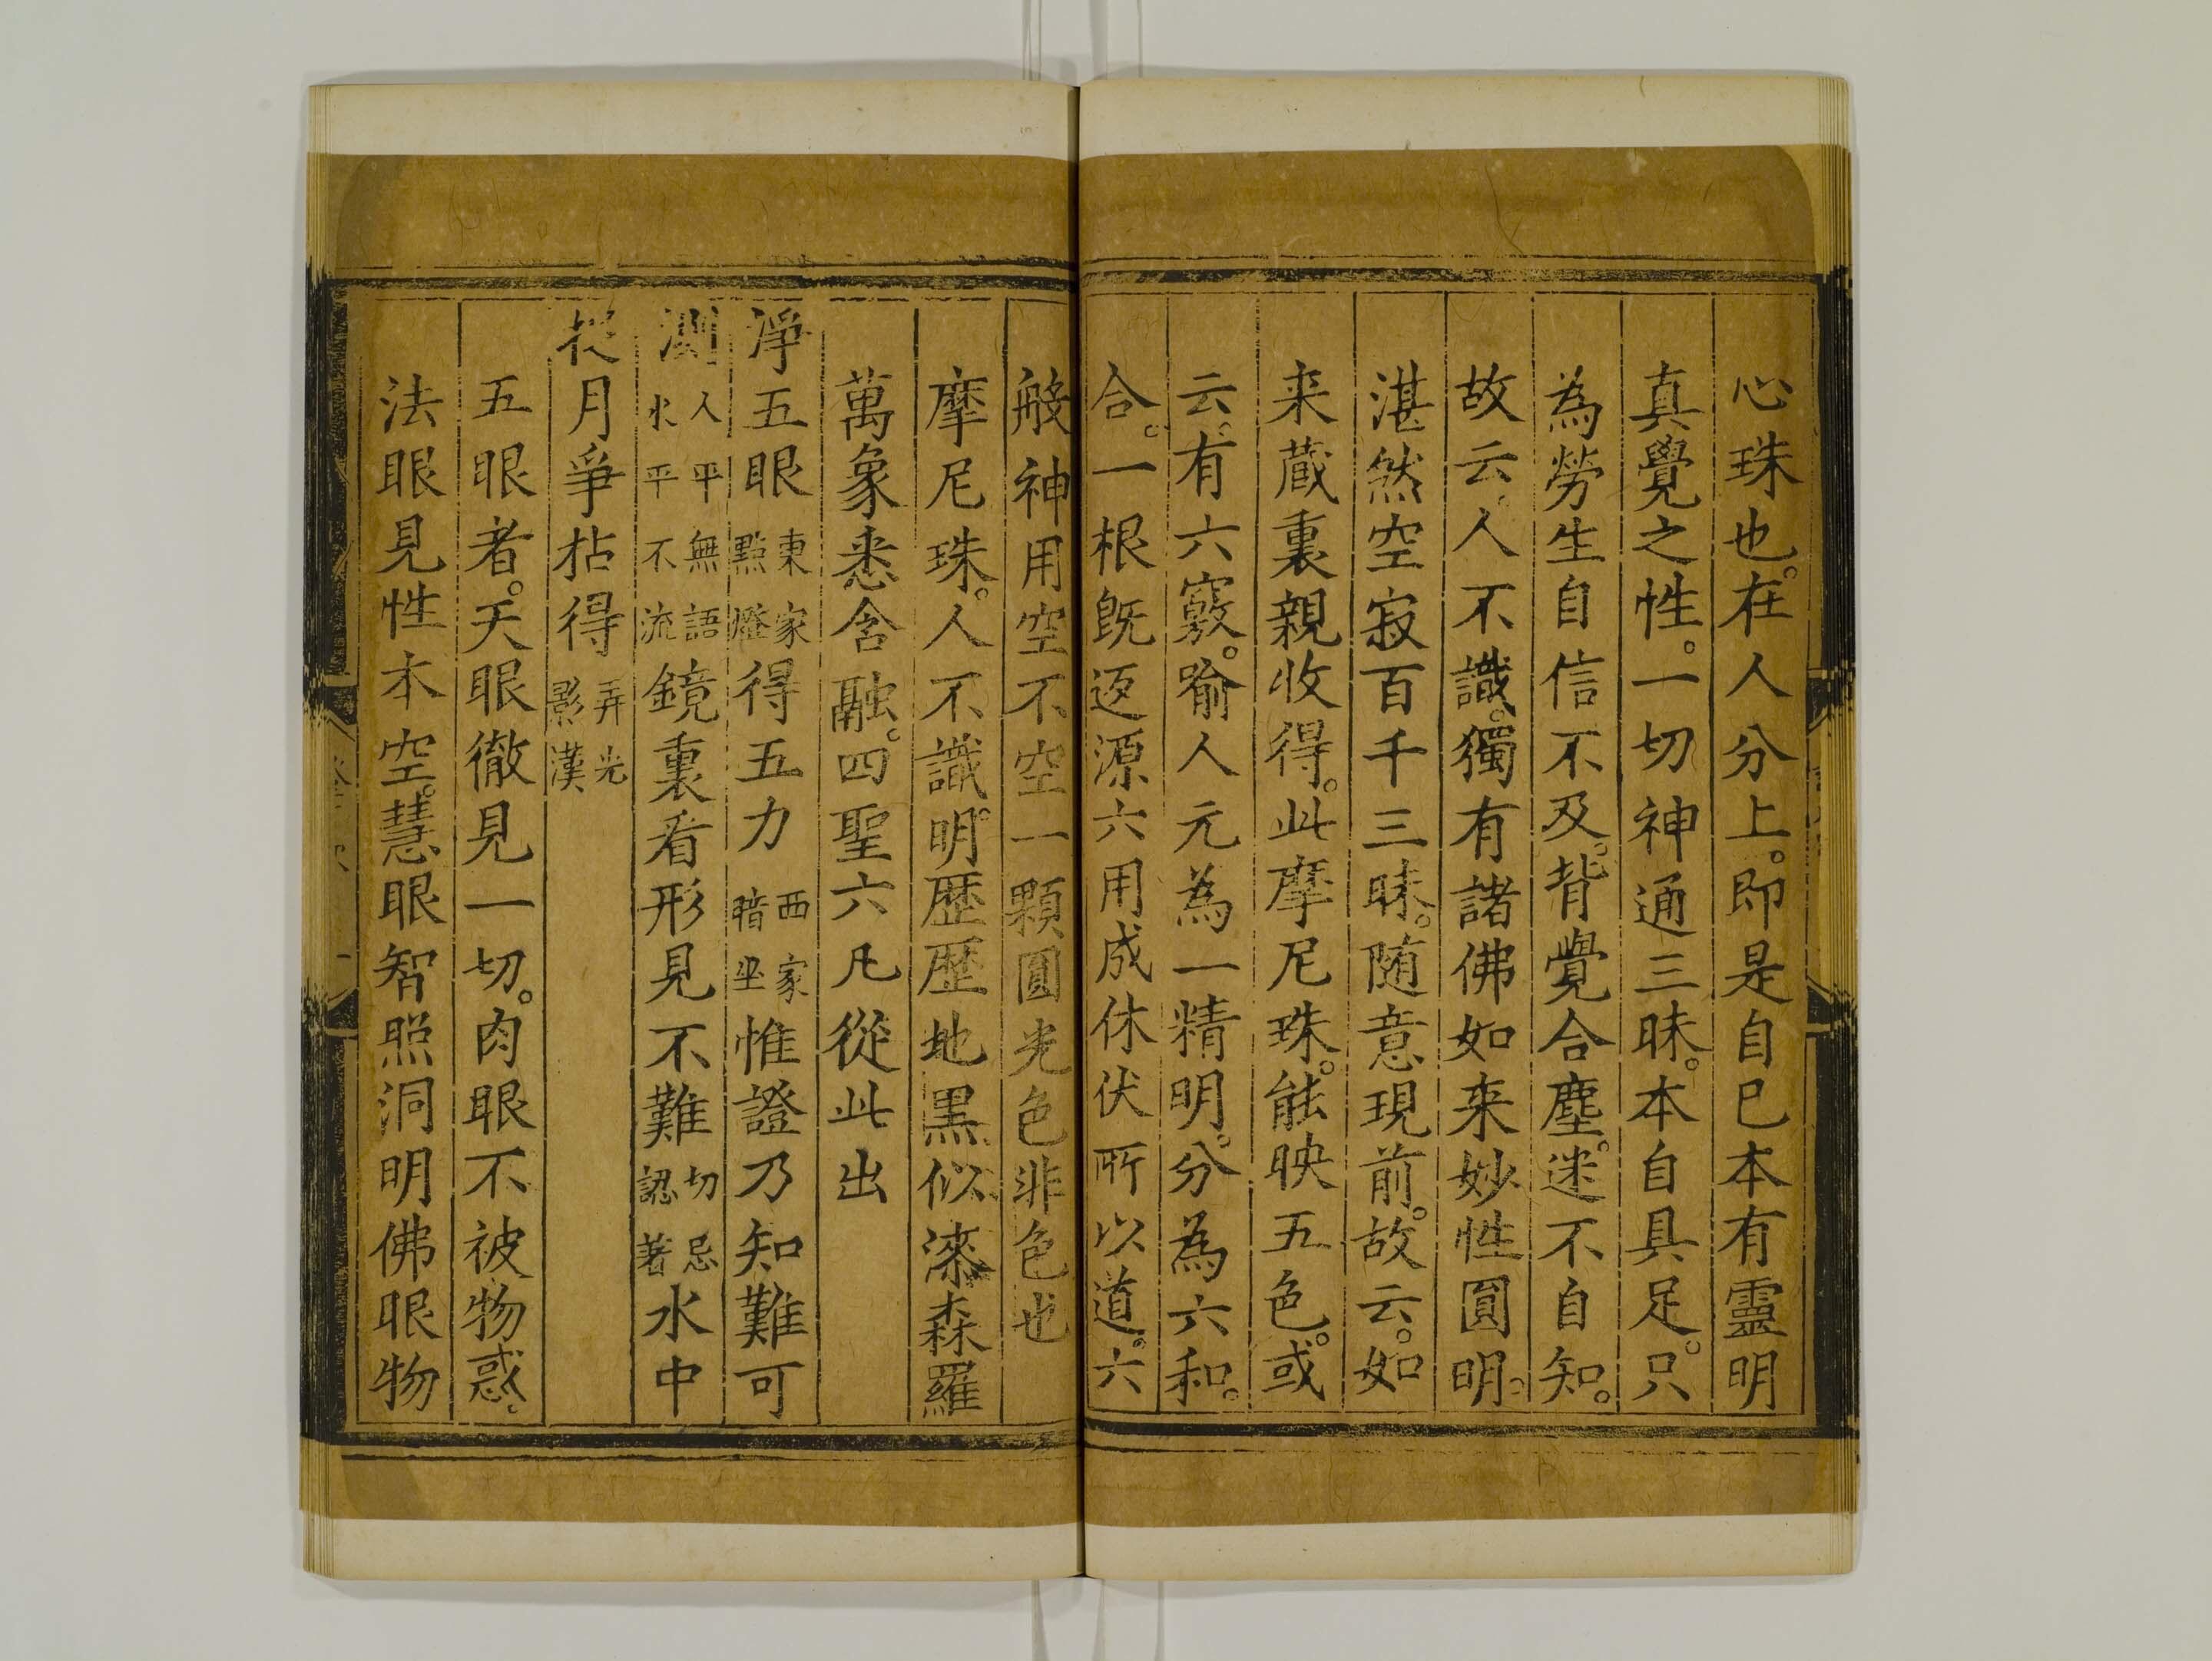 心珠也。在人分上。即是自已本有靈明
真覺之性。一切神通三昧。本自具足。只
為勞生自信不及。背覺合塵。迷不自知。
故云人不識。獨有諸佛如来妙性圓明。
湛然空寂百千三昧。随意現前。故云。如
来蔵裏親收得。此摩尼珠。能映五色。或
云。有六竅。喻人元為一精明。分為六和。
合。一根既返源六用成休伏所以道。六
般神用空不空一顆圓光色非色也
摩尼珠。人不識。明歴歴地黒似漆森羅
萬象悉含融。四聖六凡從此出
淨五眼 東家點燈 得五力 西家暗坐 惟證乃知難可
測 人平無語水平不流 鏡裏看形見不難 切忌認著 水中
捉月爭拈得 弄光影漢
五眼者。天眼徹見一切。肉眼不被物惑。
法眼見性本空。慧眼智照洞明佛眼物